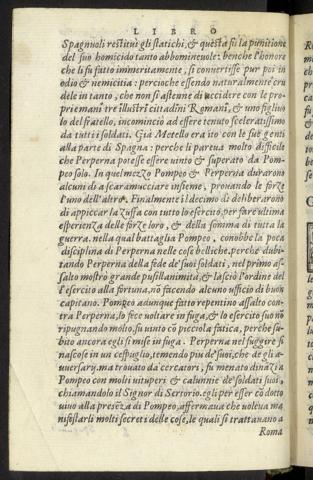 LIBRO
Spagnuoli restituì gli statichi, & questa fù la punitione
del suo homicidio tanto abbomineuole: benche l'honore
che li fu fatto immeritamente, si conuertisse pur poi in
odio & nemicitia: percioche essendo naturalmẽte cru
dele in tanto, che non si astenne di uccidere con le pro
prie mani tre illustri cittadini Romani, & uno figliuo
lo del fratello, incominciò ad essere tenuto sceleratissimo
da tutti i soldati. Già Metello era ito con le sue genti
alla parte di Spagna: perche li pareua molto difficile
che Perperna potesse essere uinto & superato da Pom-
peo solo. In quel mezo Pompeo & Perperna durarono
alcuni dì a scaramucciare insieme, prouando le forze
l'uno dell'altro. Finalmente il decimo dì deliberarono
di appiccar la Zuffa con tutto lo esercito, per fare ultima
esperienza delle forze loro, & della somma di tutta la
guerra. nella qual battaglia Pompeo, conobbe la poca
disciplina di Perperna nelle cose belliche, perche dubi-
tando Perperna della fede de' suoi soldati, nel primo as-
salto mostrò grande pusillanimità, & lasciò l'ordine del
l'esercito alla fortuna, nõ facendo alcuno ufficio di buon
capitano. Pompeo adunque fatto repentino assalto con
tra Perperna, lo fece uoltare in fuga, & lo esercito suo nõ
ripugnando molto, fu uinto cõ picciola fatica, perche su-
bito ancora egli si mise in fuga. Perperna nel fuggire si
nascose in un cespuglio, temendo piu de' suoi, che de gli a-
uuersarij. ma trouato da' cercatori, fu menato dinãzi a
Pompeo con molti uituperi & calunnie de' soldati suoi,
chiamandolo il Signor di Sertorio. egli per esser cõ dotto
uiuo alla presẽza di Pompeo, affermaua che uoleua ma
nifestarli molti secreti delle cose, le quali si trattauano a
Roma